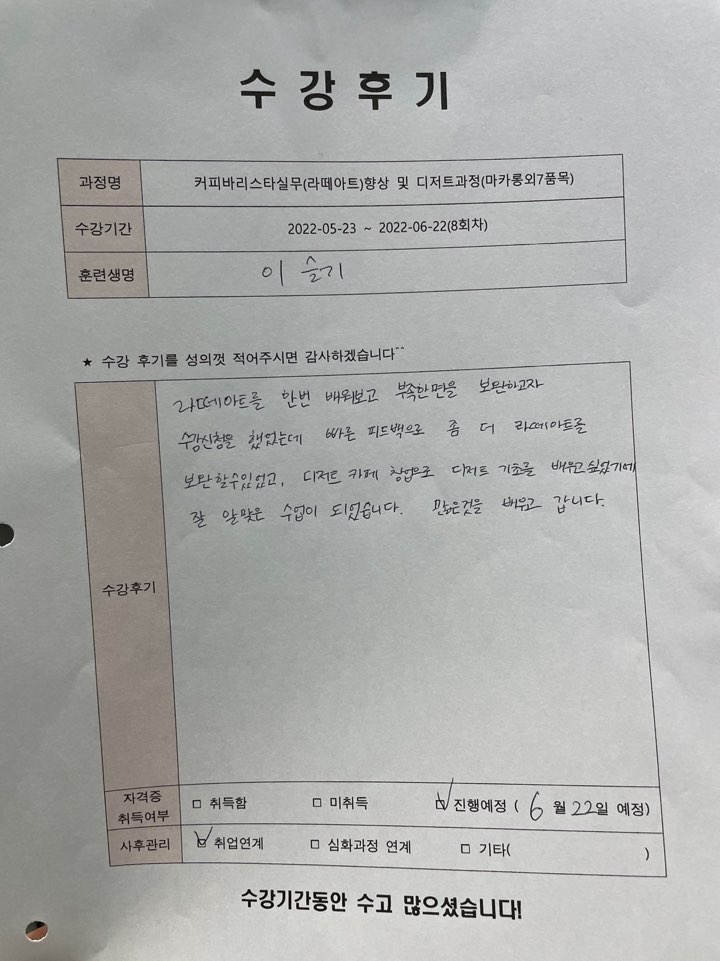 수강후기
과정명 커피바리스타실무(라떼아트)향상 및 디저트과정(마카롱외7품목)
수강기간 2022-05-23 ~ 2022-06-22(8회차)
훈련생명 이슬기
★ 수강 후기를 성의껏 적어주시면 감사하겠습니다^^
라떼아트를 한번 배워보고 부족한면을 보완하고자
수강신청을 했었는데 빠른 피드백으로 좀 더 라떼아트를
보완할수있었고, 디저트 카페 창업으로 디저트 기초를 배우고싶었기에
잘 알맞은 수업이 되었습니다. 많은것을 배우고 갑니다.
수강후기
자격증
취득여부 □ 취득함 □ 미취득 ☑ 진행예정 ( 6 월 22일 예정)
사후관리 ☑ 취업연계 □ 심화과정 연계 □ 기타( )
수강기간동안 수고 많으셨습니다!